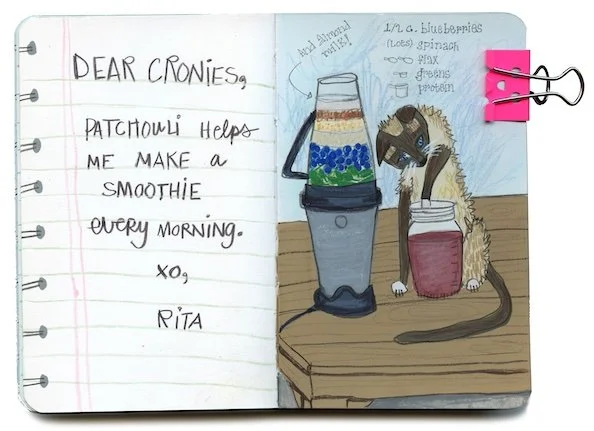 DEAR CRONIES,
PATCHOULI HELPS
ME MAKE A
SMOOTHIE
EVERY MORNING.
XO,
RITA
And Almond
milk!
1/2 c. blueberries
(Lots) spinach
flax
greens
protein